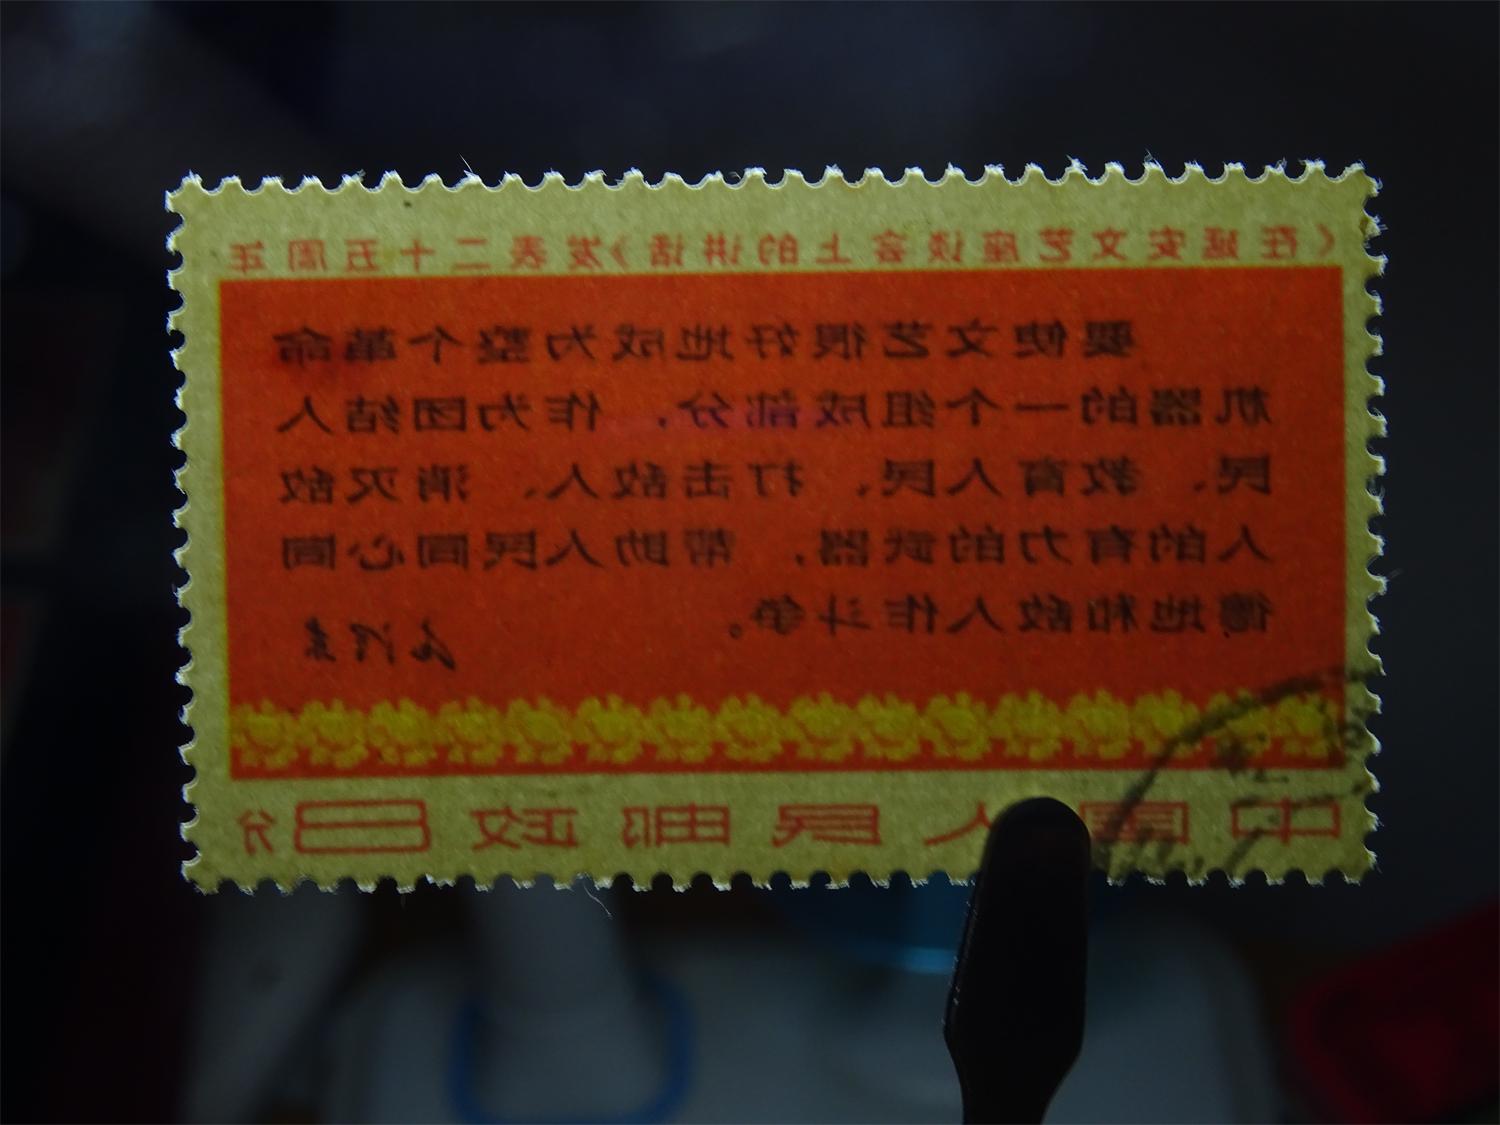 《在延安文艺座谈会上的讲话》发表二十五周年
要使文艺很好地成为整个革命
机器的一个组成部分，作为团结人
民、教育人民、打击敌人、消灭敌
人的有力的武器，帮助人民同心同
德地和敌人作斗争。
毛泽东
中国人民邮政 8分